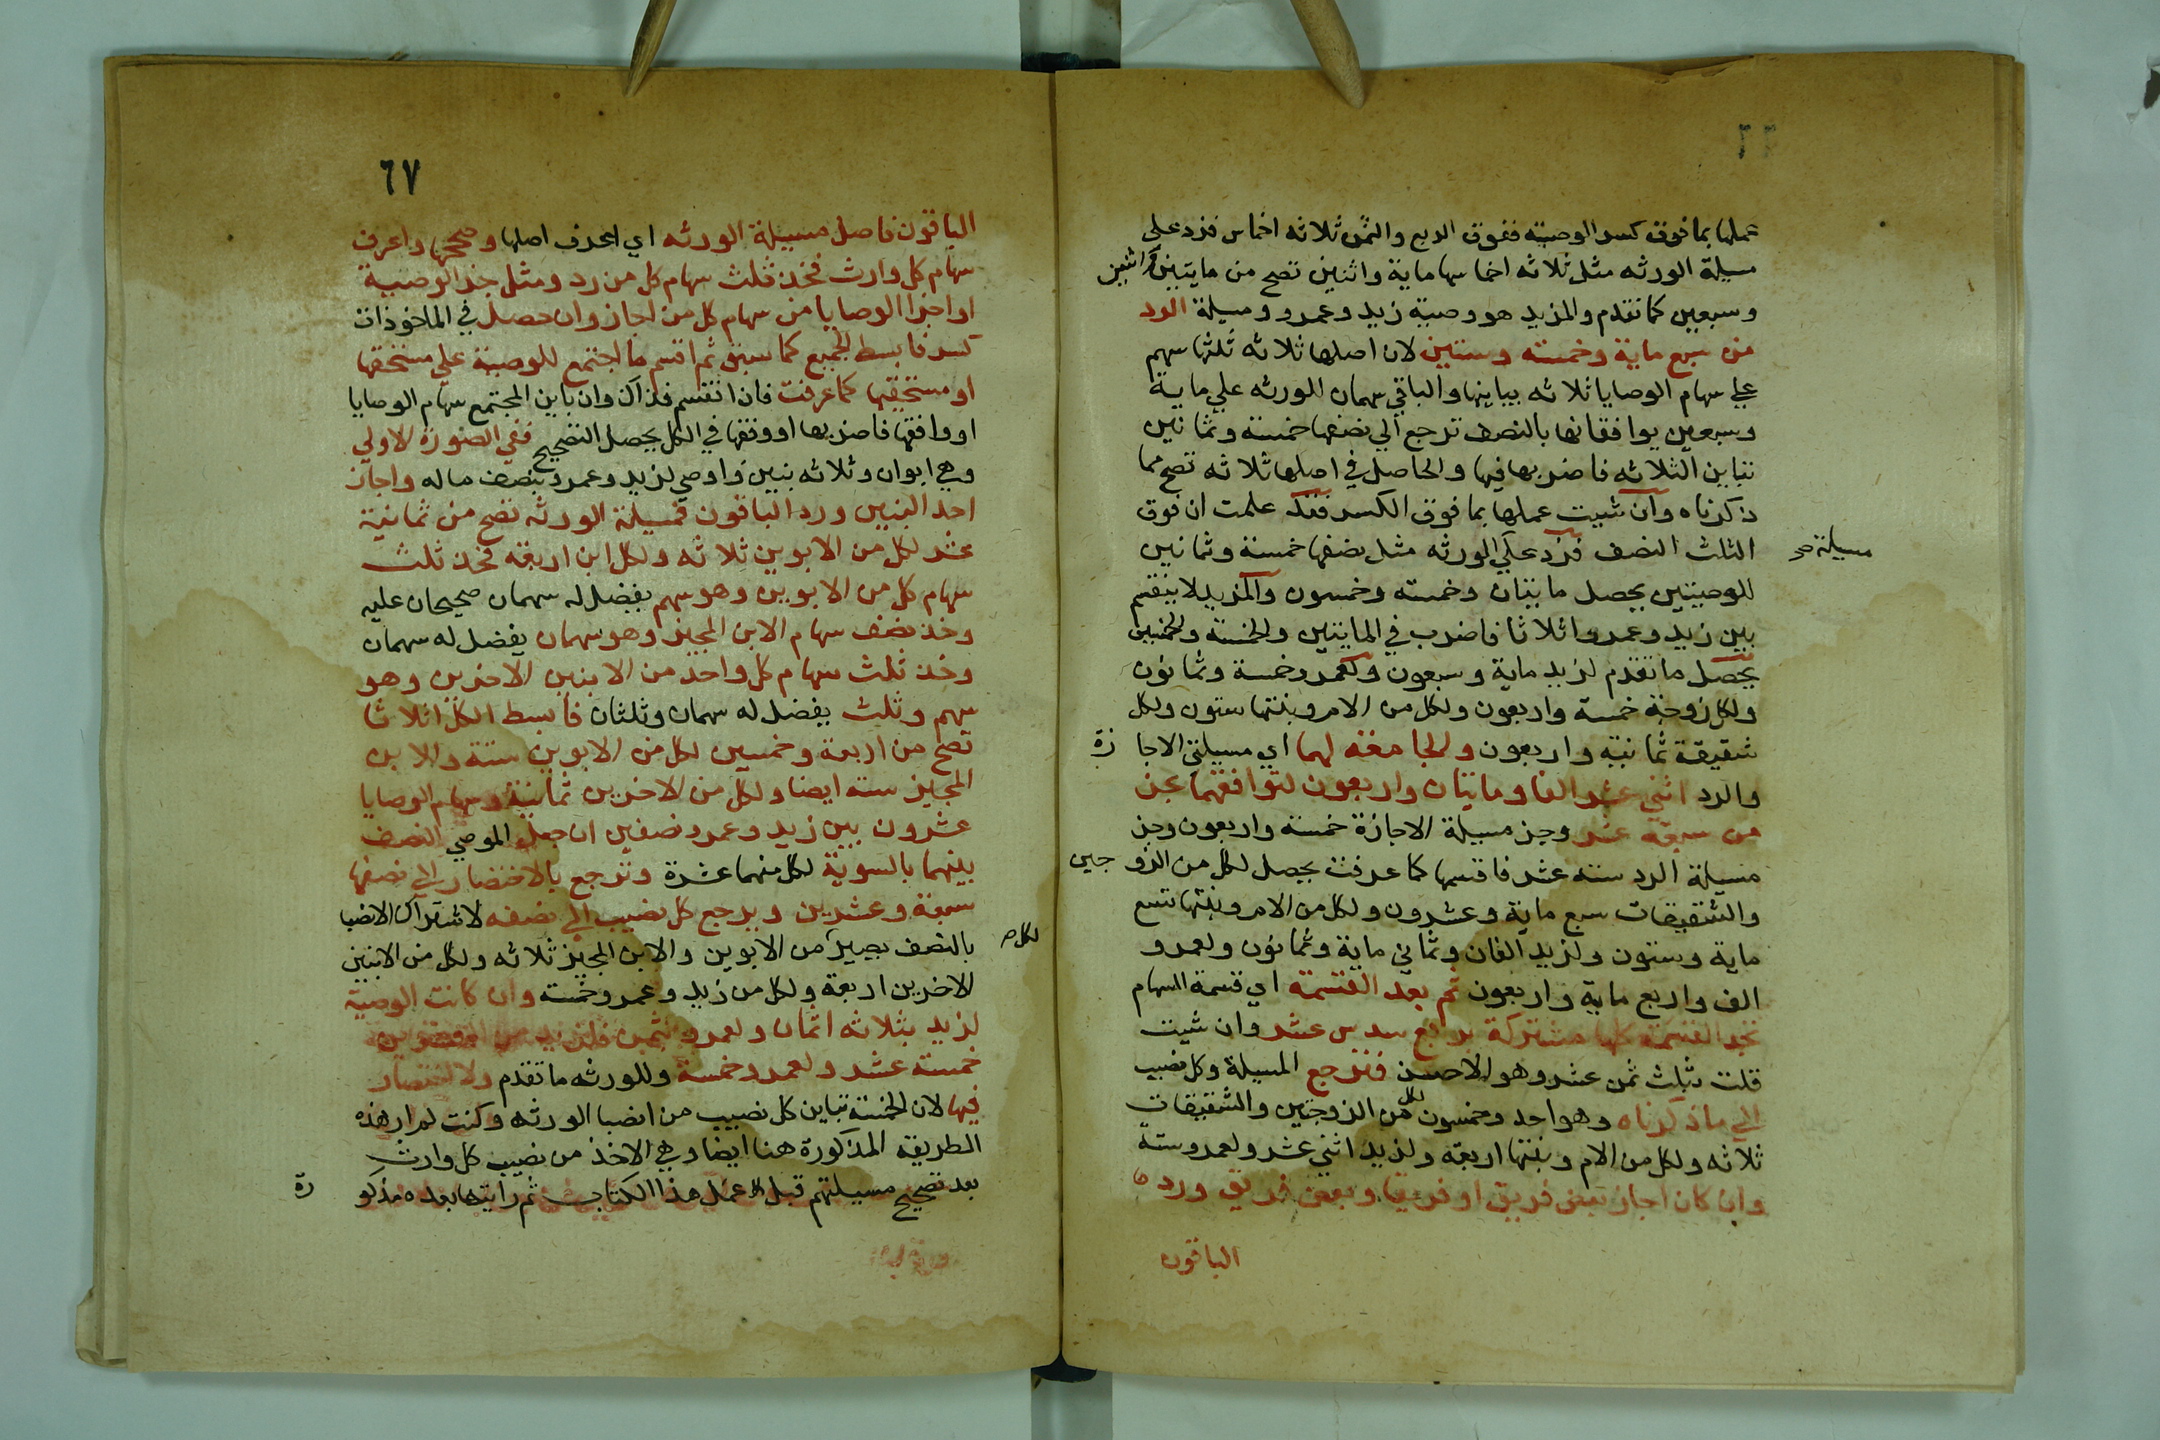 عملها بما فوق كسر الوصية ففوق الربع والثمن ثلاثه اخماس فزد علي
مسيلة الورثه مثل ثلاثه اخماسها ماية واثنين تصح من مايتين واثنين
وسبعين كما تقدم والمزيد هو وصية زيد وعمرو ومسيلة الرد
من سبع ماية وخمسته وستين لان اصلها ثلاثه ثلثها سهم
علي سهام الوصايا ثلاثه يباينها والباقي سهمان للورثه علي ماية
وسبعين يوافقانها بالنصف ترجع الي نصفها خمسة وثمانين
تباين الثلاثه فاضربها فيها والحاصل في اصلها ثلاثه تصح مما
ذكرناه وان شيت عملها بما فوق الكسر فقد علمت ان فوق
الثلث النصف فزد علي الورثه مثل نصفها خمسة وثمانين
مسيلة صح
للوصيتين يحصل مايتان وخمسه وخمسون والمزيد لا ينقسم
بين زيد وعمرو اثلاثا فاضرب في المايتين والخمسة والخمسين
يحصل ما تقدم لزيد ماية وسبعون ولعمرو خمسة وثمانون
ولكل زوجة خمسة واربعون ولكل من الام وبنتها ستون ولكل
شقيقة ثمانية واربعون والجامعه لهما اي مسيلتي الاجازة
والرد اثني عشر الفا ومايتان واربعون لتوافقهما بجز
من سبعه عشر وجز مسيلة الاجازة خمسة واربعون وجز
مسيلة الرد سته عشر فاقسمها كما عرفت يحصل لكل من الزوجين
والشقيقات سبع ماية وعشرون ولكل من الام وبنتها تسع
ماية وستون ولزيد الفان وثماني ماية وثمانون ولعمرو
الف واربع ماية واربعون ثم بعد القسمة اي قسمة السهام
تجد القسمة كلها مشتركة بربع سدس عشر وان شيت
قلت بثلث ثمن عشر وهو الاحسن فترجع المسيلة وكل نصيب
الي ما ذكرناه وهو احد وخمسون لكل من الزوجتين والشقيقات
ثلاثه ولكل من الام وبنتها اربعة ولزيد اثني عشر ولعمرو ستة
وان كان اجاز بعض فريق او فريقا وبعض فريق ورد
الباقون
٦٧
الباقون فاصل مسيلة الورثه اي اعرف اصلها وصححها واعرف
سهام كل وارث فخذ ثلث سهام كل من رد ومثل جز الوصية
او اجزا الوصايا من سهام كل من اجاز وان حصل في الماخوذات
كسر فابسط الجميع كما سبق ثم اقسم ما اجتمع للوصية علي مستحقها
او مستحقيها كما عرفت فان انقسم فذاك وان باين المجتمع سهام الوصايا
او وافقها فاضربها او وفقها في الكل يحصل التصحيح ففي الصورة الاولي
وهي ابوان وثلاثه بنين واوصي لزيد وعمرو بنصف ماله واجاز
احد البنين ورد الباقون فمسيلة الورثه تصح من ثمانية
عشر لكل من الابوين ثلاثه ولكل ابن اربعة فخذ ثلث
سهام كل من الابوين وهو سهم يفضل له سهمان صحيحان عليه
وخذ نصف سهام الابن المجيز وهو سهمان يفضل له سهمان
وخذ ثلث سهام كل واحد من الابنين الاخرين وهو
سهم وثلث يفضل له سهمان وثلثان فابسط الكل اثلاثا
تصح من اربعة وخمسين لكل من الابوين ستة وللابن
المجيز سته ايضا ولكل من الاخرين ثمانية وسهام الوصايا
عشرون بين زيد وعمرو نصفين ان جعل الموصي النصف
بينهما بالسوية لكل منهما عشرة وترجع بالاختصار الي نصفها
سبعة وعشرين ويرجع كل نصيب الي نصفه لاشتراك الانصبا
بالنصف يصير من الابوين والابن المجيز ثلاثه ولكل من الابنين
لكل صح
الاخرين اربعة ولكل من زيد وعمرو خمسة وان كانت الوصية
لزيد بثلاثه اثمان ولعمرو بثمن فلزيد من
خمسة عشر ولعمرو خمسة وللورثه ما تقدم ولا اختصار
فيها لان الخمسة تباين كل نصيب من انصبا الورثه وكنت لم ار هذه
الطريقة المذكورة هنا ايضا وهي الاخذ من نصيب كل وارث
بعد تصحيح مسيلتهم قبل عمل هذا الكتاب ثم رايتها بعده مذكورة